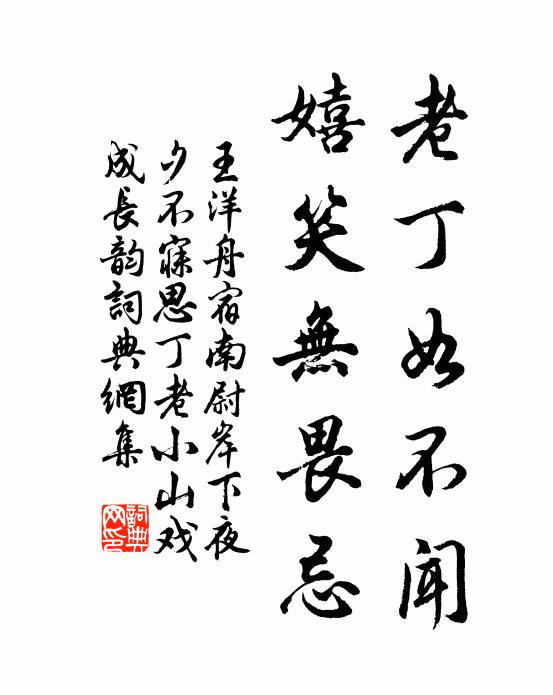 老丁如不闻
嬉笑無畏忌
王洋舟宿南尉岸下夜
夕不寐思丁老小山戏
成長韵詞典網集
詞典
网印